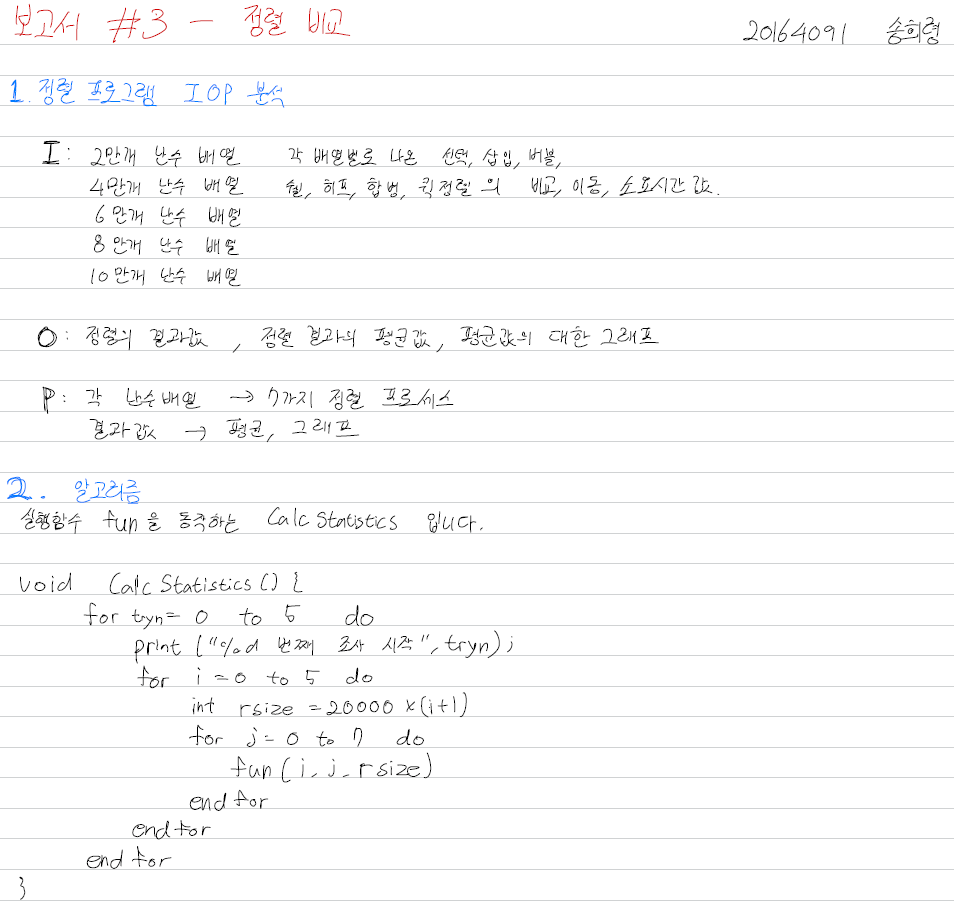 보고서 #3 - 정렬 비교
20164091 송희령
1. 정렬 프로그램 IOP 분석
I: 2만개 난수 배열 각 배열별로 나온 선택, 삽입, 버블,
4만개 난수 배열 쉘, 히프, 합병, 퀵정렬의 비교, 이동, 소요시간 값.
6만개 난수 배열
8만개 난수 배열
10만개 난수 배열
O: 정렬의 결과값, 정렬 결과의 평균값, 평균값의 대한 그래프
P: 각 난수배열 → 7가지 정렬 프로세스
결과값 → 평균, 그래프
2. 알고리즘
실행함수 fun을 동작하는 Calc Statistics 입니다.
void Calc Statistics () {
for tryn = 0 to 5 do
print ("%d 번째 조사 시작", tryn);
for i = 0 to 5 do
int rsize = 20000 x (i+1)
for j = 0 to 7 do
fun (i, j, rsize)
end for
end for
end for
}